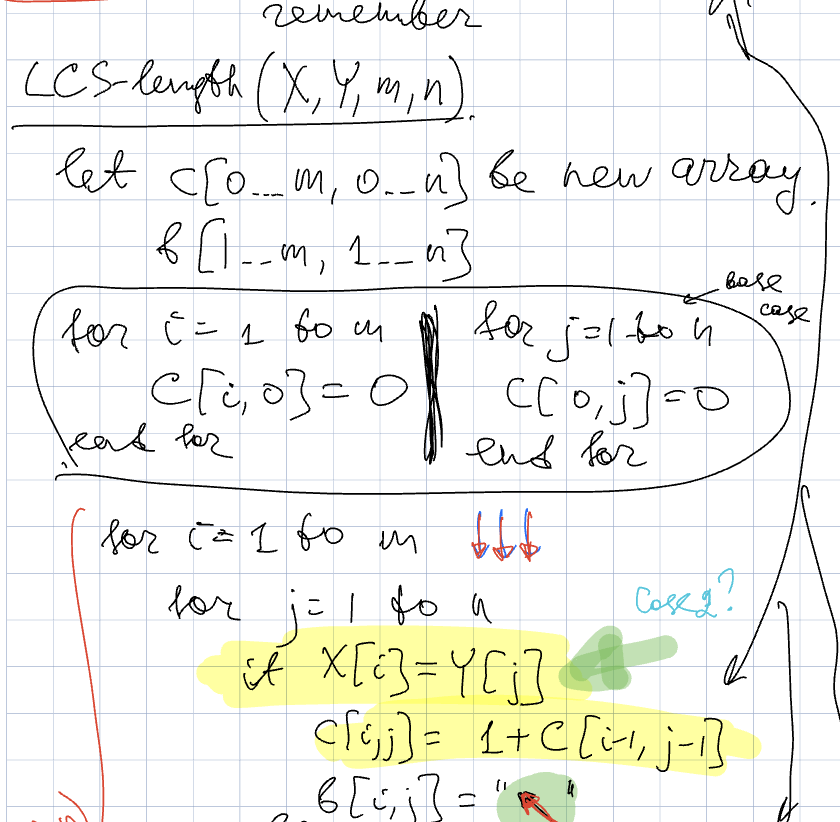 remember
LCS-length (X, Y, m, n).
let C[0--m, 0--n] be new array.
b[1--m, 1--n]
base
case
for i = 1 to m
C[i, 0] = 0
end for
for j = 1 to n
C[0, j] = 0
end for
for i = 1 to m
for j = 1 to n
Case 2?
if X[i] = Y[j]
C[i,j] = 1 + C[i-1, j-1]
b[i,j] = "↖"